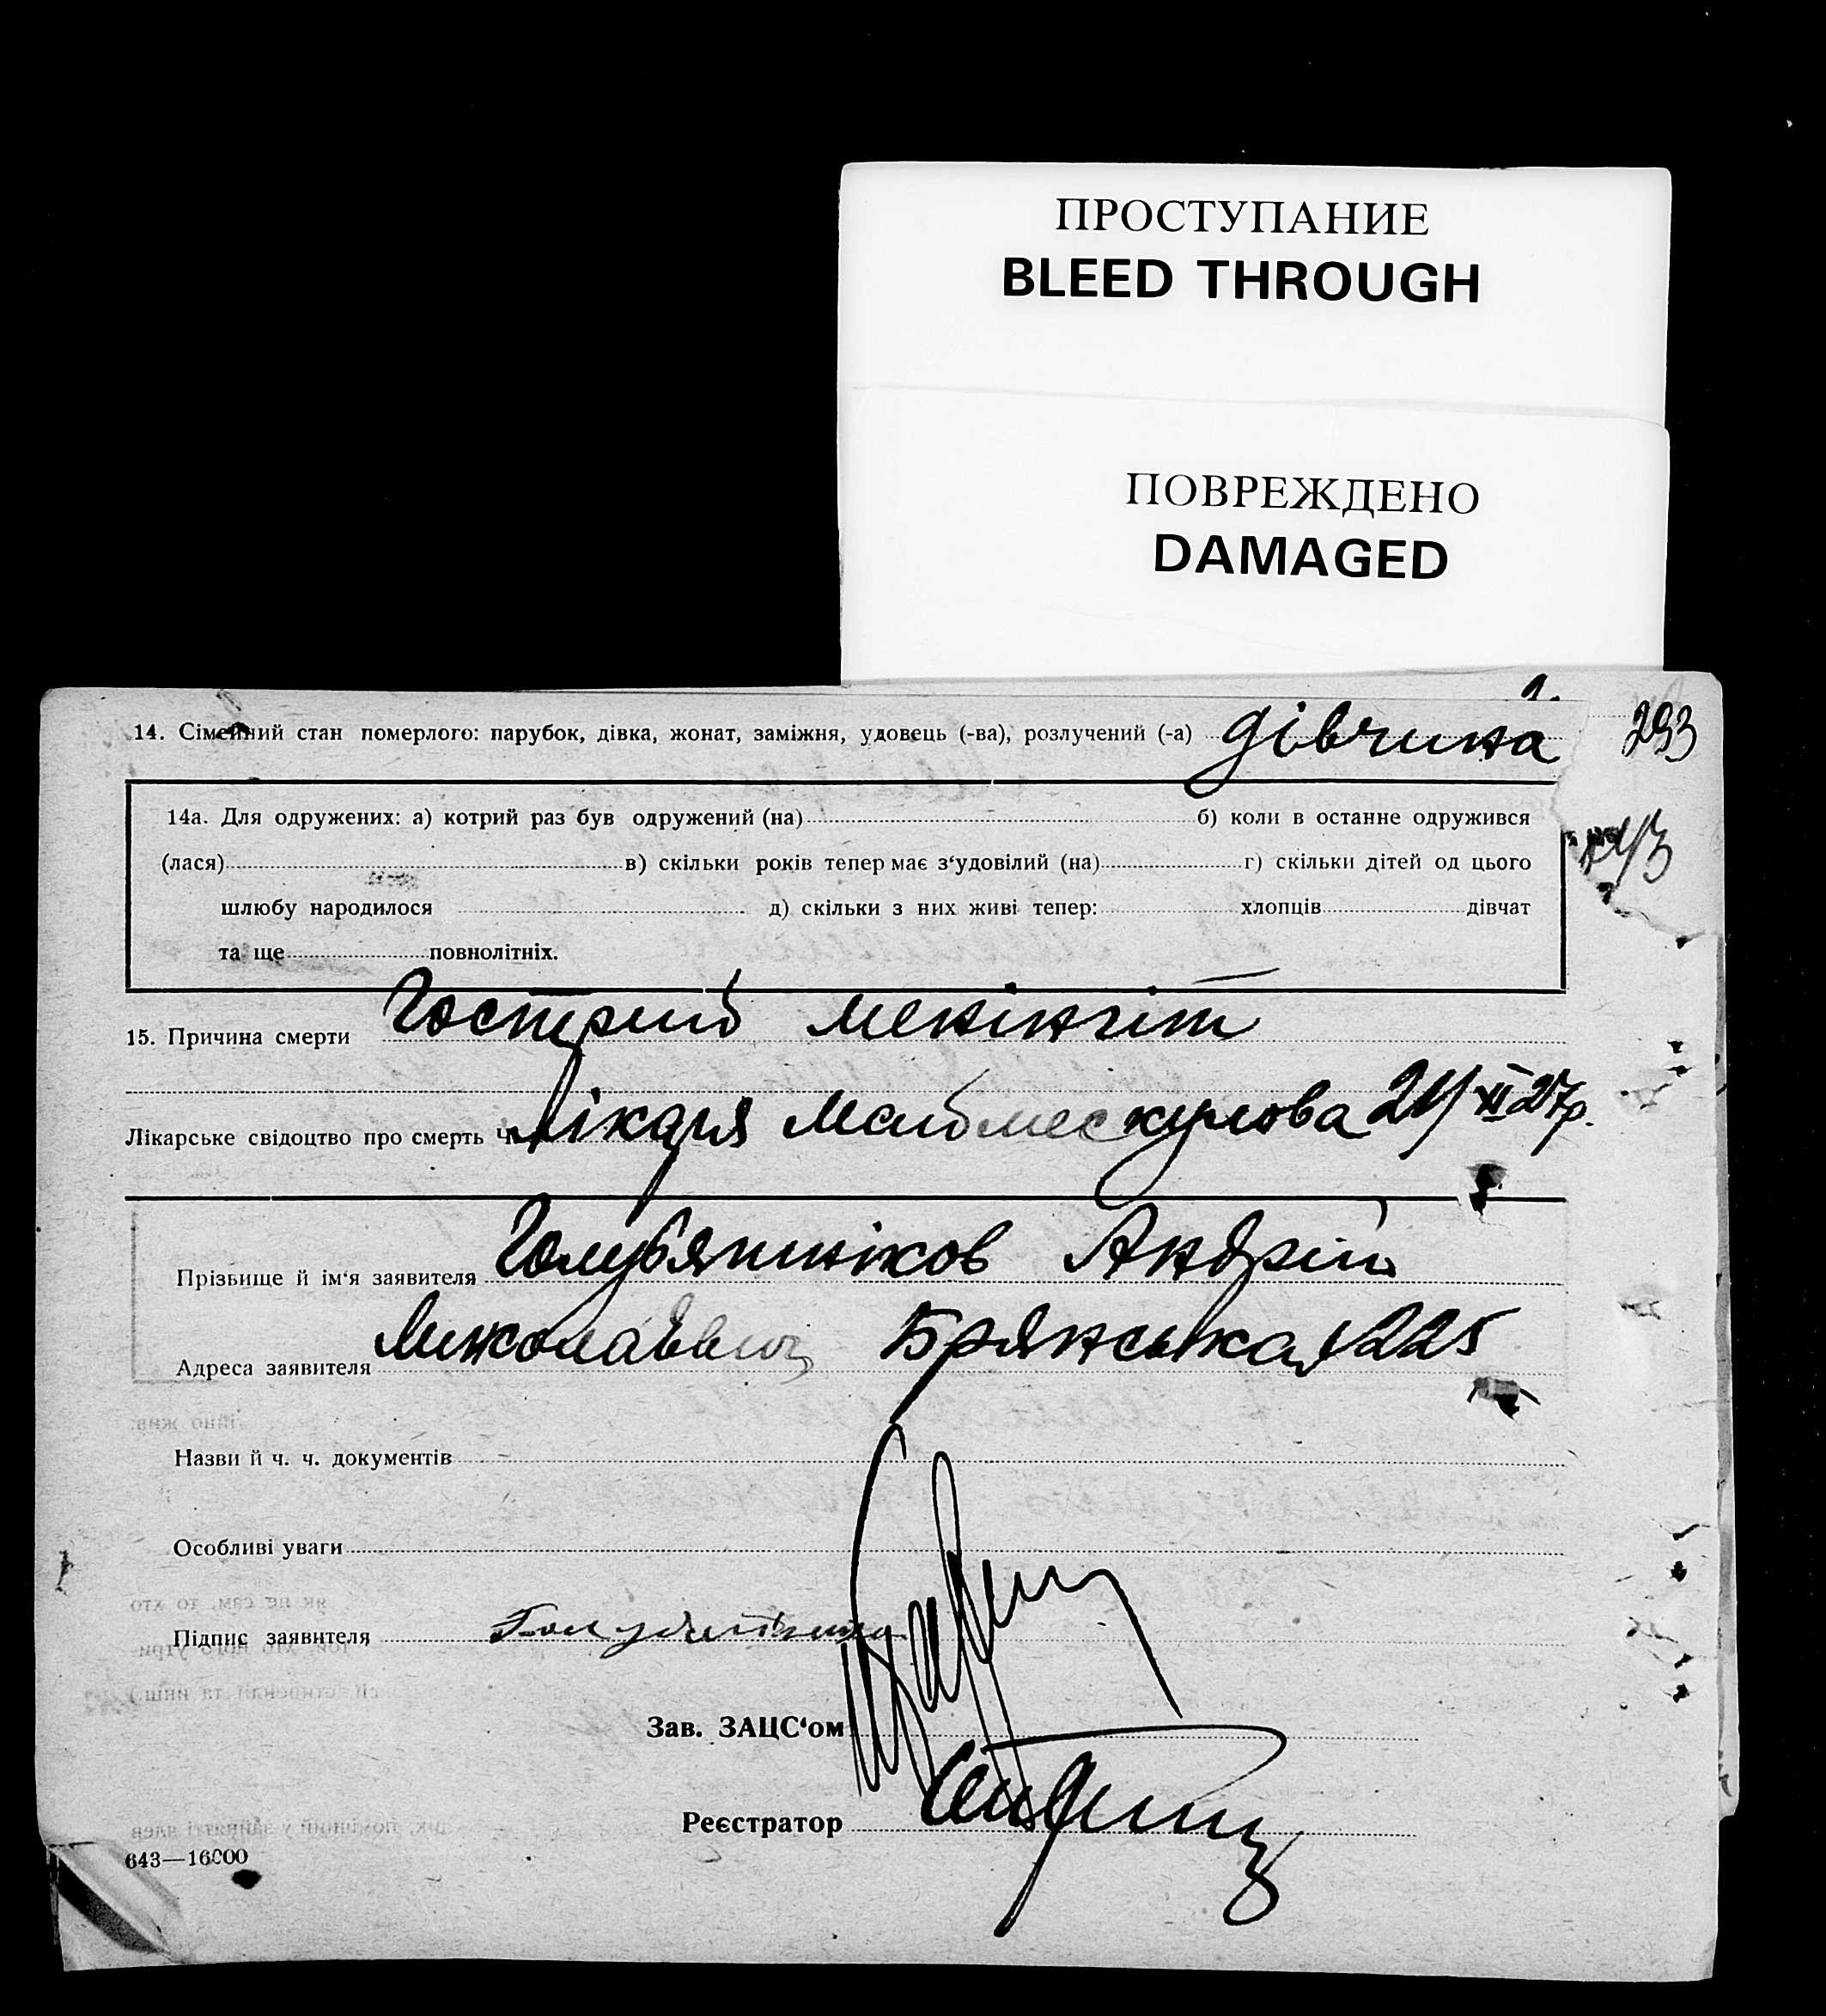 ПРОСТУПАНИЕ
BLEED THROUGH
ПОВРЕЖДЕНО
DAMAGED
14. Сімейний стан померлого: парубок, дівка, жонат, заміжня, удовець (-ва), розлучений (-а) дівчина
293
14а. Для одружених: а) котрий раз був одружений (на) б) коли в останне одружився
(лася) в) скільки років тепер має з‘удовілий (на) г) скільки дітей од цього
шлюбу народилося д) скільки з них живі тепер: хлопців дівчат
та ще повнолітніх.
15. Причина смерти Гострий менінгіт
Лікарське свідоцтво про смерть Ч. Лікаря 24/XII 27р.
Прізвище й ім‘я заявителя Голуб'ятніков Андрій
Адреса заявителя Миколаєвич Брянська 225
Назви й ч. ч. документів
Особливі уваги
Підпис заявителя
Зав. ЗАЦС‘ом
Реєстратор
643—16000